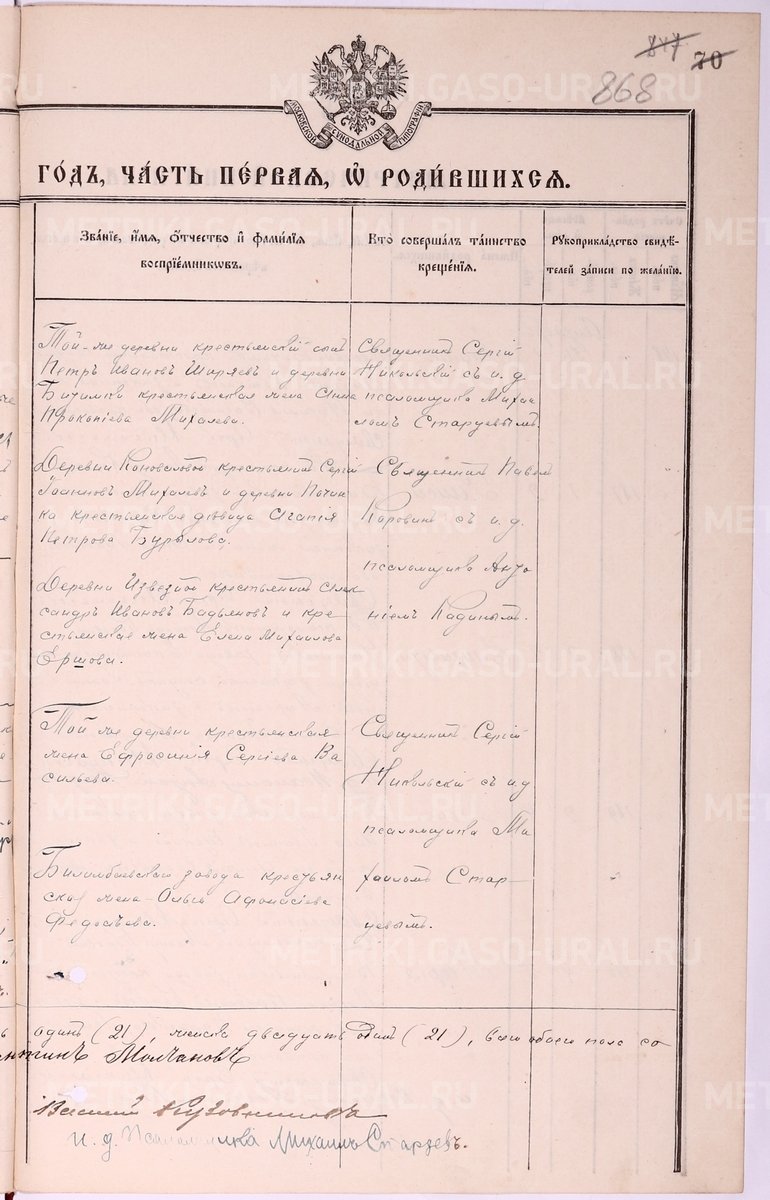 847 70
868
МОСКОВСКОЙ СѴНОДАЛЬНОЙ ТИПОГРАФІИ
ГО́ДЪ, ЧА́СТЬ ПЕ́РВАЯ, Ѽ РОДИ́ВШИХСЯ.
Зва́ніе, и҆́мя, ѻ҆́тчество и҆ фами́лїя
воспрїе́мникѡвъ.
Кто̀ соверша́лъ та́инство
креще́нїя.
Рꙋкоприкла́дство свидѣ́-
телей за́писи по жела́нїю.
Той-же деревни крестьянскій сынъ
Петръ Ивановъ Ширяевъ и деревни
Битимки крестьянская жена Анна
Прокопіева Михалева.
Священникъ Сергій
Никольскій съ и. д.
псаломщика Михаи
ломъ Старцевымъ.
Деревни Коноваловой крестьянинъ Сергій
Іоанновъ Михалевъ и деревни Почин
ка крестьянская дѣвица Агапія
Петрова Бурылова.
Священникъ Павелъ
Коровинъ съ и. д.
псаломщика Анто
ніемъ Кадинымъ.
Деревни Извезной крестьянинъ Алек
сандръ Ивановъ Бадьяновъ и кре
стьянская жена Елена Михаилова
Ершова.
Той же деревни крестьянская
жена Ефросинія Сергіева Ва
сильева.
Священникъ Сергій
Никольскій съ и. д
псаломщика Ми
хаиломъ Стар-
цевымъ.
Билимбаевскаго завода крестьян
ская жена Ольга Афанасіева
Федосѣева.
одинъ (21), женска двадцать одинъ (21), всего обоего пола со
антинъ Молчановъ
Василій Кузовниковъ
и. д. Псаломщика Михаилъ Старцевъ.
METRIKI.GASO-URAL.RU